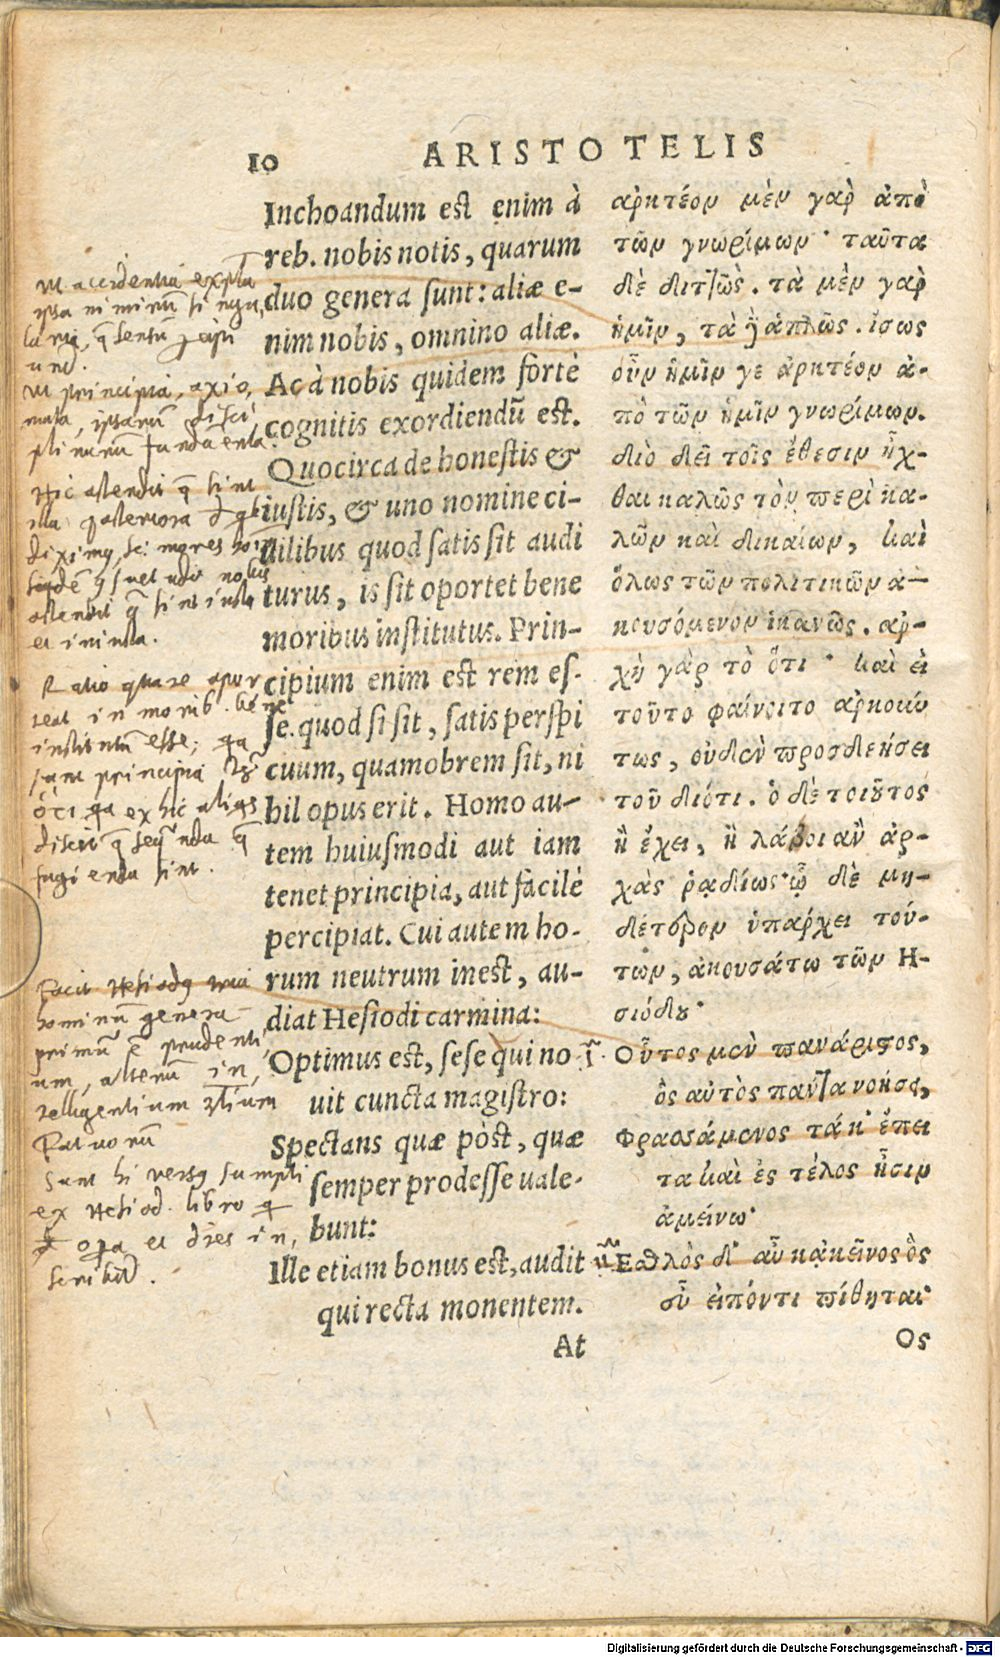 10 ARISTOTELIS
Inchoandum est enim à
reb. nobis notis, quarum
duo genera sunt: aliæ e-
nim nobis, omnino aliæ.
Ac à nobis quidem fortè
cognitis exordiendū est.
Quocirca de honestis &
iustis, & uno nomine ci-
uilibus quod satis sit audi
turus, is sit oportet bene
moribus institutus. Prin-
cipium enim est rem es-
se. quod si sit, satis perspi
cuum, quamobrem sit, ni
hil opus erit. Homo au-
tem huiusmodi aut iam
tenet principia, aut facilè
percipiat. Cui autem ho-
rum neutrum inest, au-
diat Hesiodi carmina:
Optimus est, sese qui no
uit cuncta magistro:
Spectans quæ pòst, quæ
semper prodesse uale-
bunt:
Ille etiam bonus est, audit
qui recta monentem.
At
ἀρκτέον μὲν γαρ ἀπὸ
τῶν γνωρίμων· ταῦτα
δὲ διττῶς. τὰ μὲν γαρ
ἡμῖν, τὰ δ' ἁπλῶς. ἴσως
οὖν ἡμῖν γε ἀρκτέον ἀ-
πὸ τῶν ἡμῖν γνωρίμων.
διὸ δεῖ τοῖς ἔθεσιν ἦχ-
θαι καλῶς τὸν περὶ κα-
λῶν καὶ δικαίων, καὶ
ὅλως τῶν πολιτικῶν ἀ-
κουσόμενον ἱκανῶς. ἀρ-
χὴ γὰρ τὸ ὅτι· καὶ εἰ
τοῦτο φαίνοιτο ἀρκούν
τως, οὐδὲν προσδεήσει
τοῦ διότι. ὁ δὲ τοιοῦτος
ἢ ἔχει, ἢ λάβοι ἂν ἀρ-
χὰς ῥαδίως· ᾧ δὲ μη-
δέτερον ὑπάρχει τού-
των, ἀκουσάτω τῶν Η-
σιόδου·
Οὗτος μὲν πανάριστος,
ὃς αὐτὸς πάντα νοήσῃ,
Φρασσάμενος τά κ' ἔπει
τα καὶ ἐς τέλος ᾖσιν
ἀμείνω·
Ἐσθλὸς δ' αὖ κἀκεῖνος ὃς
εὖ εἰπόντι πίθηται·
Ος
Ratio quare opor
teat in morib. bene
institutū esse; qa
sunt principia
ὅτι qa ex hic
fugienda sint.
Facit Hesiodus tria
hominū genera
primū ē prudenti
um, alterū in,
telligentium 3tium
Fatuorū
Sunt hi versus sumpti
ex Hesiod. libro
opa et dies in,
scribit̄.
Digitalisierung gefördert durch die Deutsche Forschungsgemeinschaft - DFG